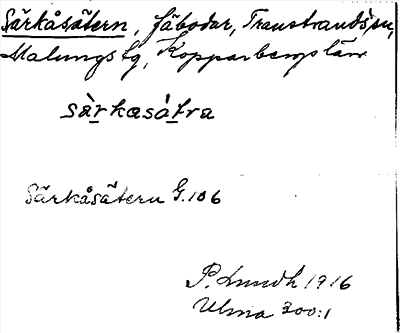 Särkåsätern, fäbodar, Transtrands sn,
Malungs tg, Kopparbergs län
sàrkæsátra
Särkåsätern G. 106
P. Lundh 1916
Ulma 300:1